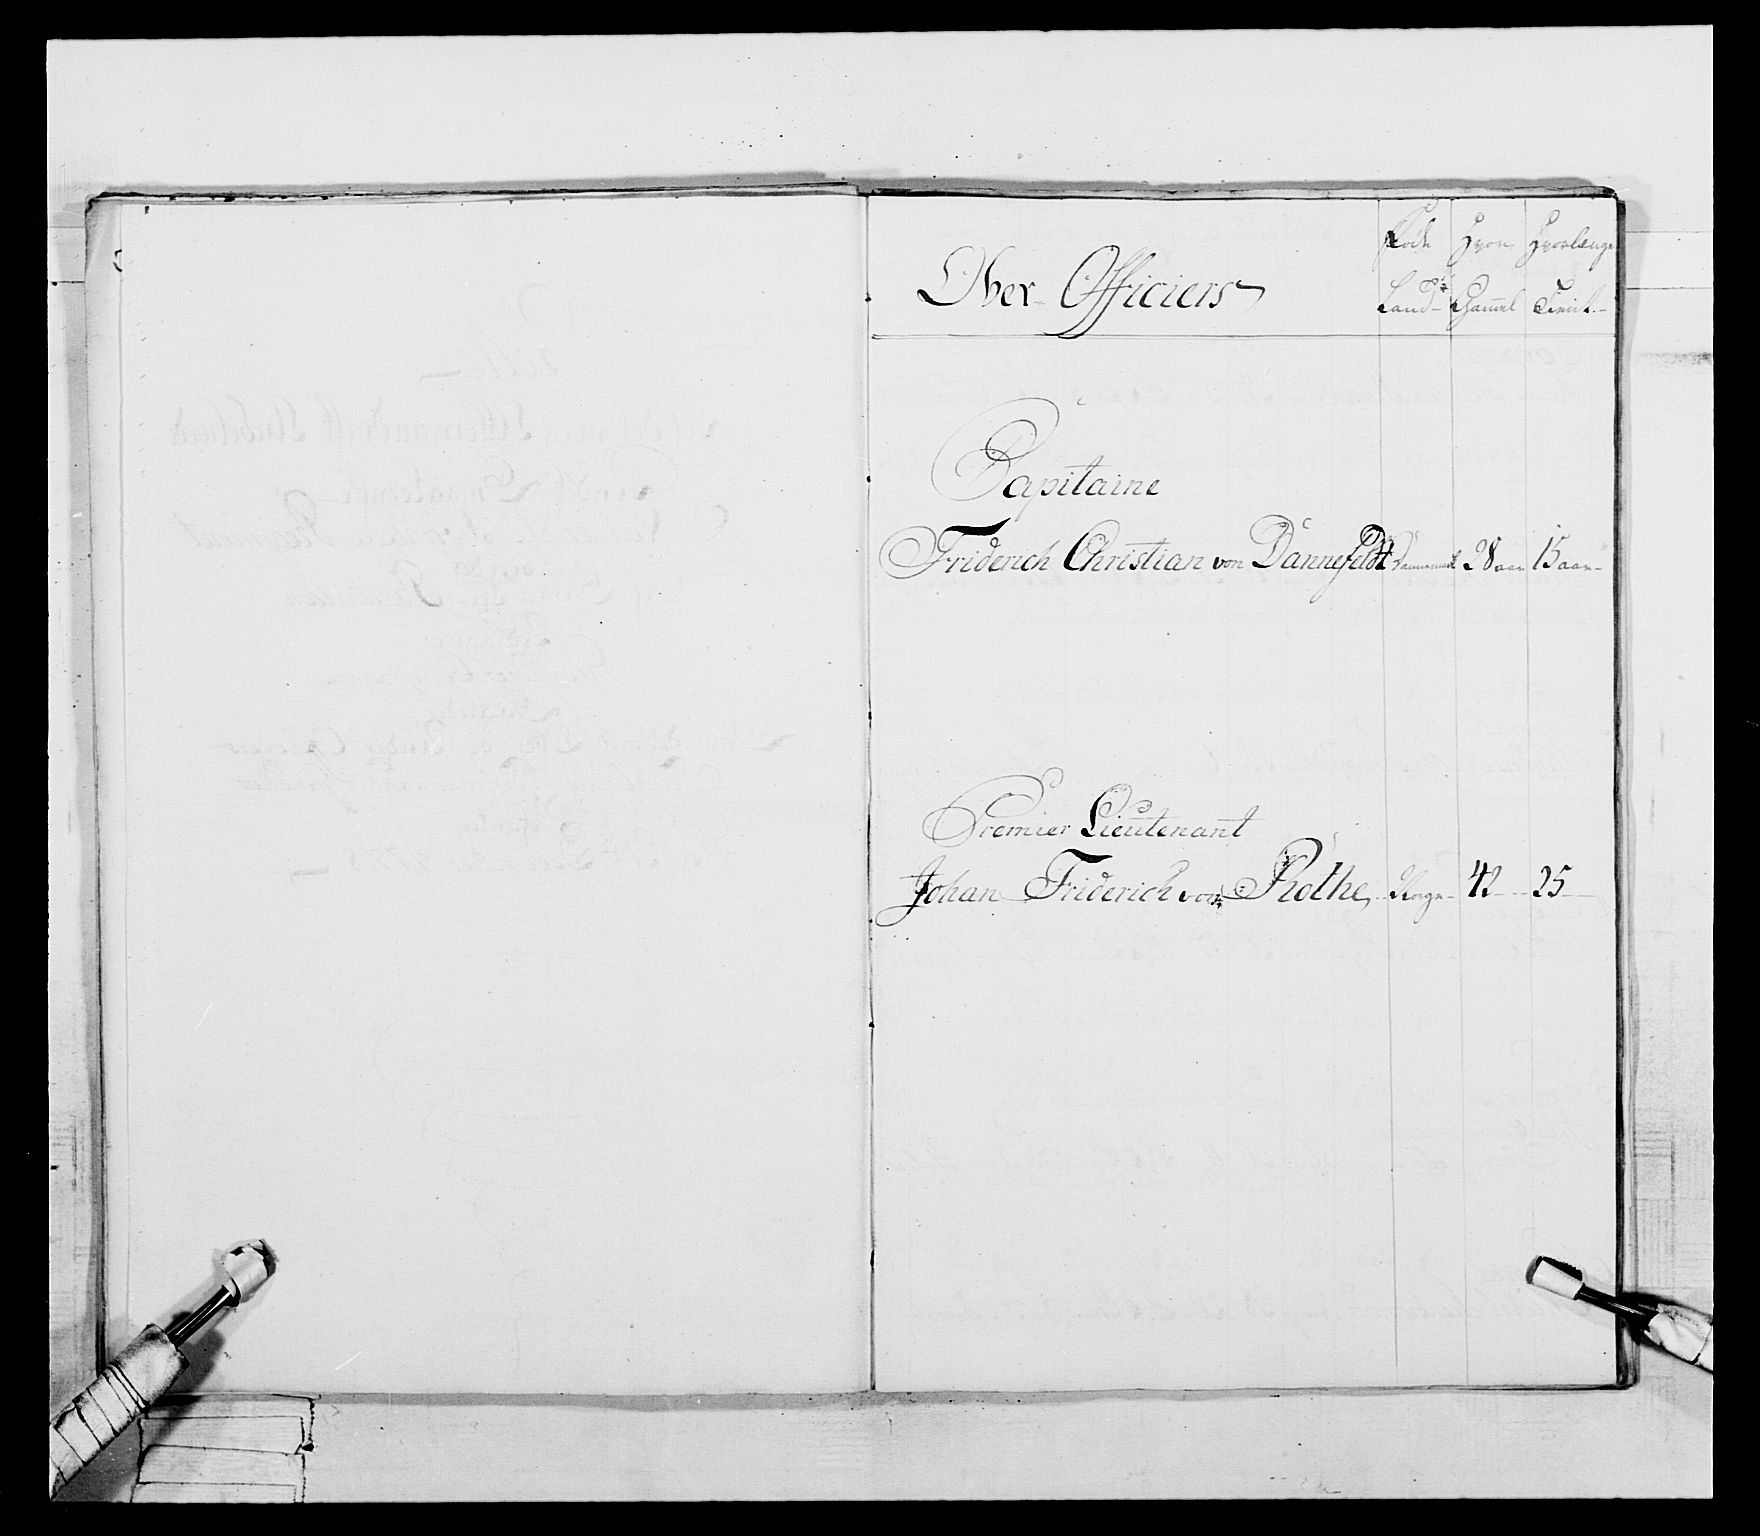 Ober Officiers
Føde Land
Hvor Gammel
Hvorlænge Tient
Capitaine
Friderich Christian von Dannefeldt Dannemark 28 aar 15 aar
Premier Lieutenant
Johan Friderich von Rothe Norge 42 25